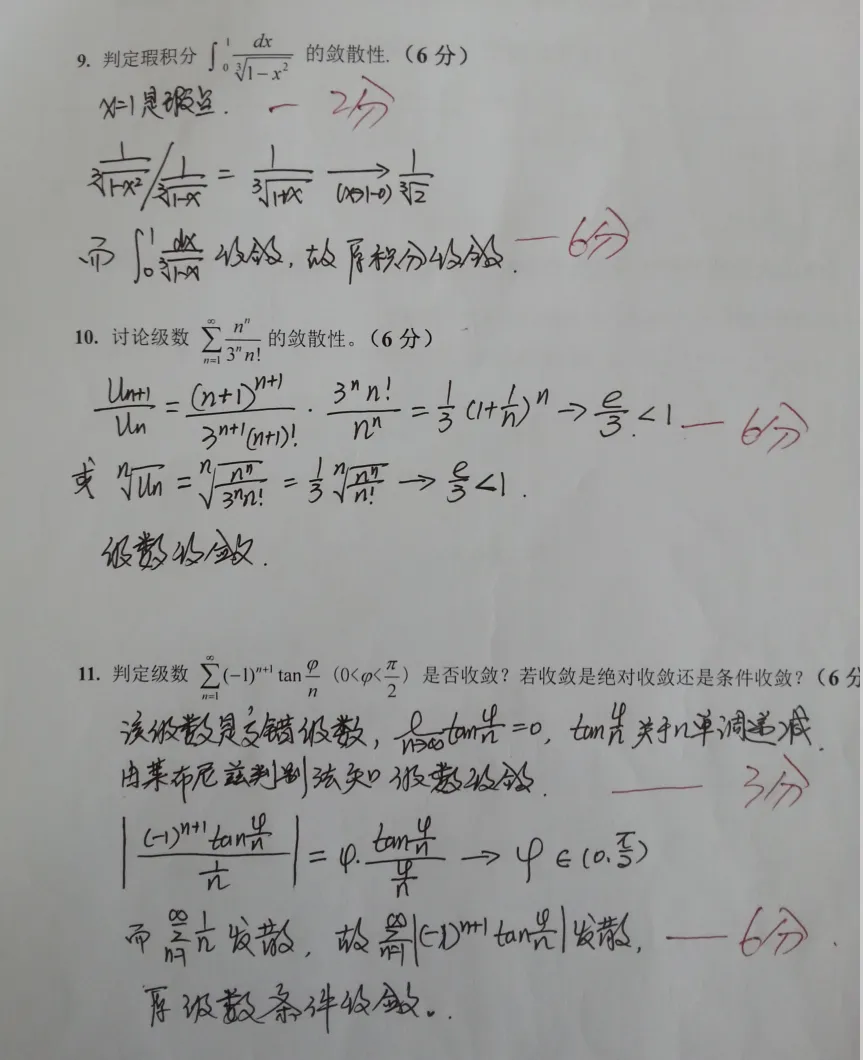 9. 判定瑕积分 ∫₀¹ dx/∛(1−x²) 的敛散性.（6 分）
x=1是瑕点. — 2分
1/∛(1-x²) / 1/∛(1-x) = 1/∛(1+x) ⟶(x→1-0) 1/∛2
而 ∫₀¹ dx/∛(1-x) 收敛, 故原积分收敛. — 6分
10. 讨论级数 ∑_{n=1}^{∞} nⁿ/(3ⁿ n!) 的敛散性。（6 分）
U_{n+1}/U_n = (n+1)^{n+1}/(3^{n+1}(n+1)!) · 3ⁿ n!/nⁿ = 1/3 (1+1/n)ⁿ → e/3 <1 — 6分
或 ⁿ√U_n = ⁿ√(nⁿ/(3ⁿn!)) = 1/3 ⁿ√(nⁿ/n!) → e/3 <1.
级数收敛.
11. 判定级数 ∑_{n=1}^{∞} (−1)^{n+1} tan φ/n （0<φ<π/2）是否收敛？若收敛是绝对收敛还是条件收敛？（6 分
该级数是交错级数, ℓ_{n→∞} tan φ/n =0, tan φ/n 关于n单调递减.
由莱布尼兹判别法知级数收敛. — 3分
| (-1)^{n+1} tan φ/n / 1/n | = φ· tan φ/n / φ/n → φ ∈ (0, π/2)
而 ∑_{n=1}^{∞} 1/n 发散, 故 ∑_{n=1}^{∞} |(-1)^{n+1} tan φ/n| 发散, — 6分.
原级数条件收敛.